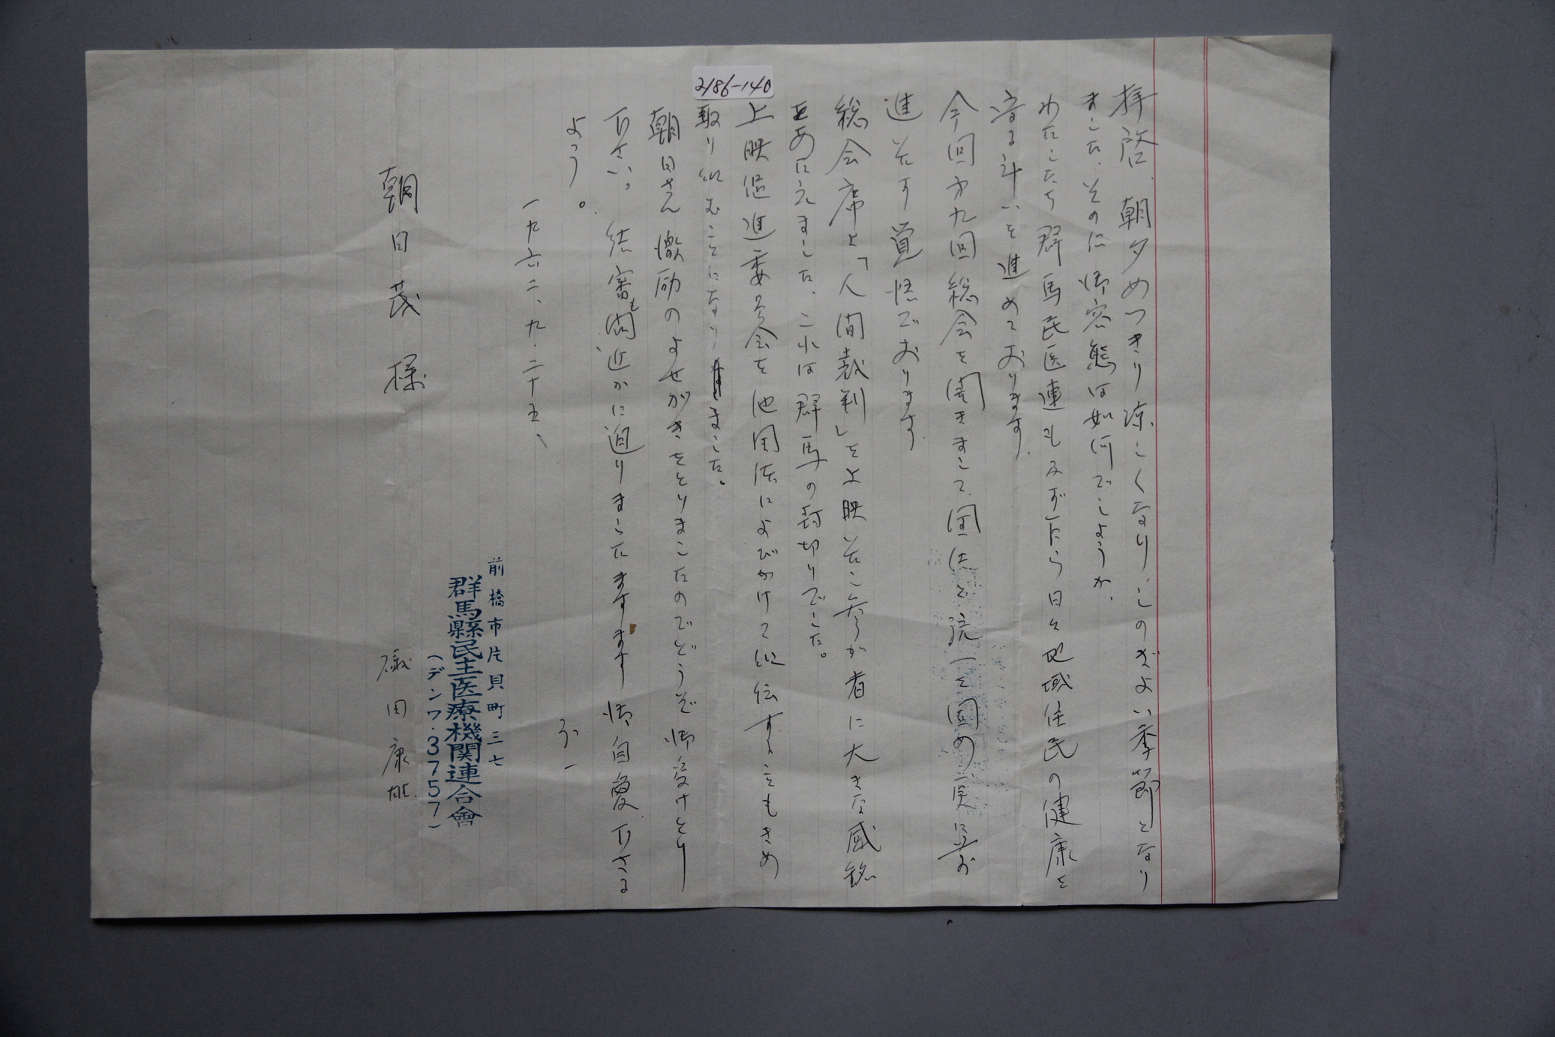 2186-140
拝啓、朝夕めつきり涼しくなり、しのぎよい季節となり
ました、その后御容態は如何でしようか、
わたしたち群馬民医連も日々地域住民の健康を
守る斗いを進めております、
今回第九回総会を開きまして、団結と統一を固め
進そす覚悟でおります、
総会席上「人間裁判」を上映いたし参加者に大きな感銘
をあたえました、これは群馬の封切りでした。
上映促進委員会を他団体によびかけて組伝することもきめ
取り組むことになりました。
朝日さん激励のよせがきをとりましたのでどうぞ御受けとり
下さい。結審も間近かに迫りましたますます御自愛下さる
よう。
一九六二、九・二十五、
前橋市片貝町三七
群馬縣民主医療機関連合會
(デンワ・3757)
朝日茂様
磯田康